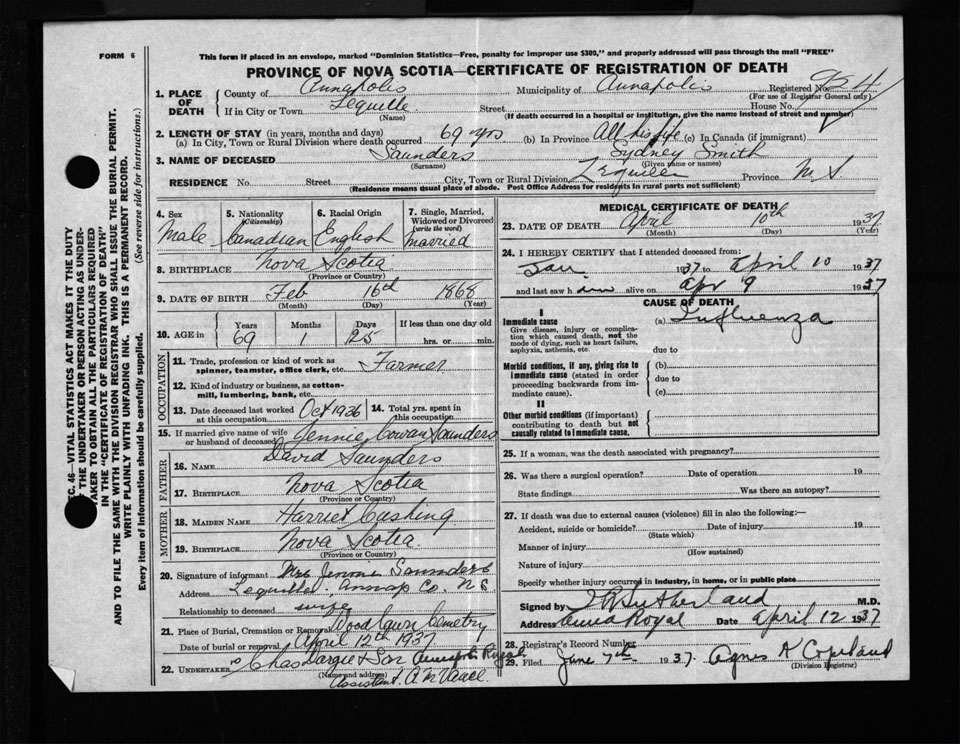 FORM 6
This form if placed in an envelope, marked "Dominion Statistics—Free, penalty for improper use $300," and properly addressed will pass through the mail "FREE"
PROVINCE OF NOVA SCOTIA—CERTIFICATE OF REGISTRATION OF DEATH
1. PLACE OF DEATH
County of Annapolis Municipality of Annapolis Registered No.
(For use of Registrar General only)
If in City or Town Lequille Street House No.
(Name) (If death occurred in a hospital or institution, give the name instead of street and number)
2. LENGTH OF STAY (in years, months and days)
(a) In City, Town or Rural Division where death occurred 69 yrs. (b) In Province All his life (c) In Canada (if immigrant)
3. NAME OF DECEASED Saunders Sydney Smith
(Surname) (Given name or names)
RESIDENCE No. Street City, Town or Rural Division Lequille Province N.S.
(Residence means usual place of abode. Post Office Address for residents in rural parts not sufficient)
4. Sex Male
5. Nationality (Citizenship) Canadian
6. Racial Origin English
7. Single, Married, Widowed or Divorced (write the word) married
8. BIRTHPLACE Nova Scotia
(Province or Country)
9. DATE OF BIRTH Feb 16th 1868
(Month) (Day) (Year)
10. AGE in Years Months Days If less than one day old
69 1 25 hrs. or min.
OCCUPATION
11. Trade, profession or kind of work as spinner, teamster, office clerk, etc. Farmer
12. Kind of industry or business, as cotton-mill, lumbering, bank, etc.
13. Date deceased last worked at this occupation Oct 1936
14. Total yrs. spent in this occupation
15. If married give name of wife or husband of deceased Jennie Cowan Saunders
FATHER
16. NAME David Saunders
17. BIRTHPLACE Nova Scotia
(Province or Country)
MOTHER
18. MAIDEN NAME Harriet Cushing
19. BIRTHPLACE Nova Scotia
(Province or Country)
20. Signature of informant Mrs Jennie Saunders
Address Lequille. Annap Co. N S
Relationship to deceased wife
21. Place of Burial, Cremation or Removal Woodlawn Cemetery
Date of burial or removal April 12th 1937
22. UNDERTAKER Chas Dargie & Son Annapolis Royal
(Name and address)
Assistant.
MEDICAL CERTIFICATE OF DEATH
23. DATE OF DEATH April 10th 1937
(Month) (Day) (Year)
24. I HEREBY CERTIFY that I attended deceased from:
Jan 1937 to April 10 1937
and last saw him alive on Apr 9 1937
CAUSE OF DEATH
I
Immediate cause (a) Influenza
Give disease, injury or complication which caused death, not the mode of dying, such as heart failure, asphyxia, asthenia, etc.
due to
Morbid conditions, if any, giving rise to immediate cause (stated in order proceeding backwards from immediate cause).
(b)
due to
(c)
II
Other morbid conditions (if important) contributing to death but not causally related to immediate cause.
25. If a woman, was the death associated with pregnancy?
26. Was there a surgical operation? Date of operation 19
State findings Was there an autopsy?
27. If death was due to external causes (violence) fill in also the following:—
Accident, suicide or homicide? Date of injury 19
(State which)
Manner of injury
(How sustained)
Nature of injury
Specify whether injury occurred in industry, in home, or in public place
Signed by Sutherland M.D.
Address Anna Royal Date April 12 1937
28. Registrar's Record Number
29. Filed June 7th 1937. Agnes K Copeland
(Division Registrar)
SEC. 46—VITAL STATISTICS ACT MAKES IT THE DUTY
OF THE UNDERTAKER OR PERSON ACTING AS UNDER-
TAKER TO OBTAIN ALL THE PARTICULARS REQUIRED
IN THE "CERTIFICATE OF REGISTRATION OF DEATH"
AND TO FILE THE SAME WITH THE DIVISION REGISTRAR WHO SHALL ISSUE THE BURIAL PERMIT.
WRITE PLAINLY WITH UNFADING INK. THIS IS A PERMANENT RECORD.
Every item of information should be carefully supplied. (See reverse side for instructions.)